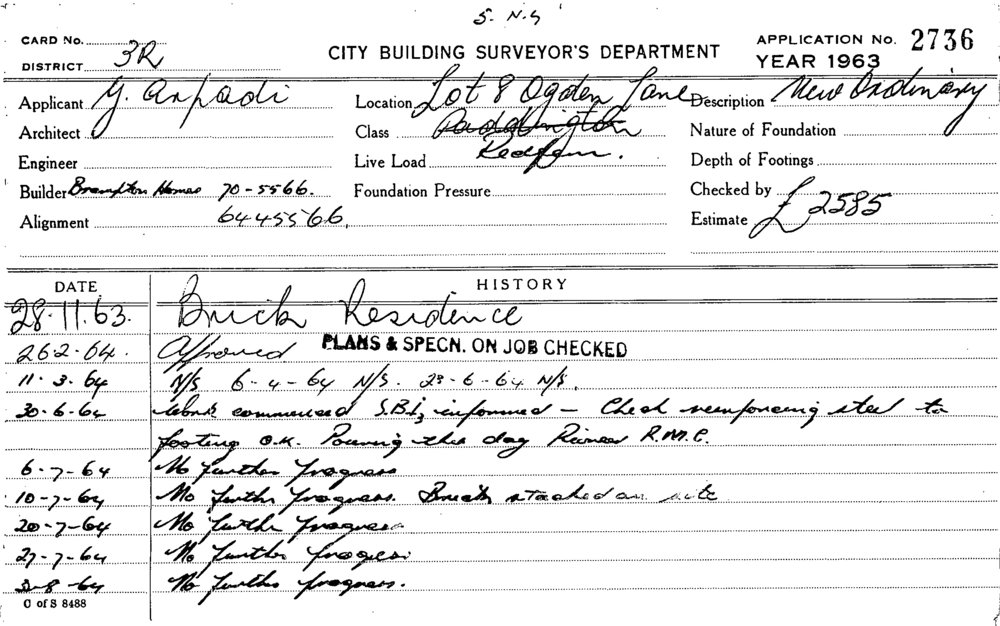 5. N.S
CARD No.
DISTRICT 3R
CITY BUILDING SURVEYOR'S DEPARTMENT
APPLICATION No. 2736
YEAR 1963
Applicant Y. Arpadi
Location Lot 8 Ogden Lane
Description New Ordinary
Architect
Class Paddington
Nature of Foundation
Engineer
Live Load Redfern.
Depth of Footings
Builder Brampton Homes 70-5566.
Foundation Pressure
Checked by
Alignment 6445566.
Estimate £2585
DATE HISTORY
28.11.63. Brick Residence
26.2.64. Approved PLANS & SPECN. ON JOB CHECKED
11.3.64 N/S 6-4-64 N/S. 23-6-64 N/S.
30-6-64 Work commenced S.B.I. informed - Check reinforcing steel to
footing O.K. Pouring this day Pioneer R.M.C.
6-7-64 No further progress
10-7-64 No further progress. Bricks stacked on site
20-7-64 No further progress
27-7-64 No further progress
3-8-64 No further progress.
C of S 8488